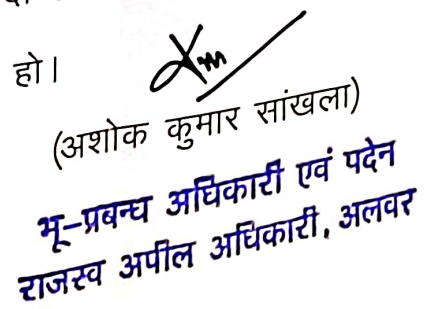 हो।
(अशोक कुमार सांखला)
भू-प्रबन्ध अधिकारी एवं पदेन
राजस्व अपील अधिकारी, अलवर